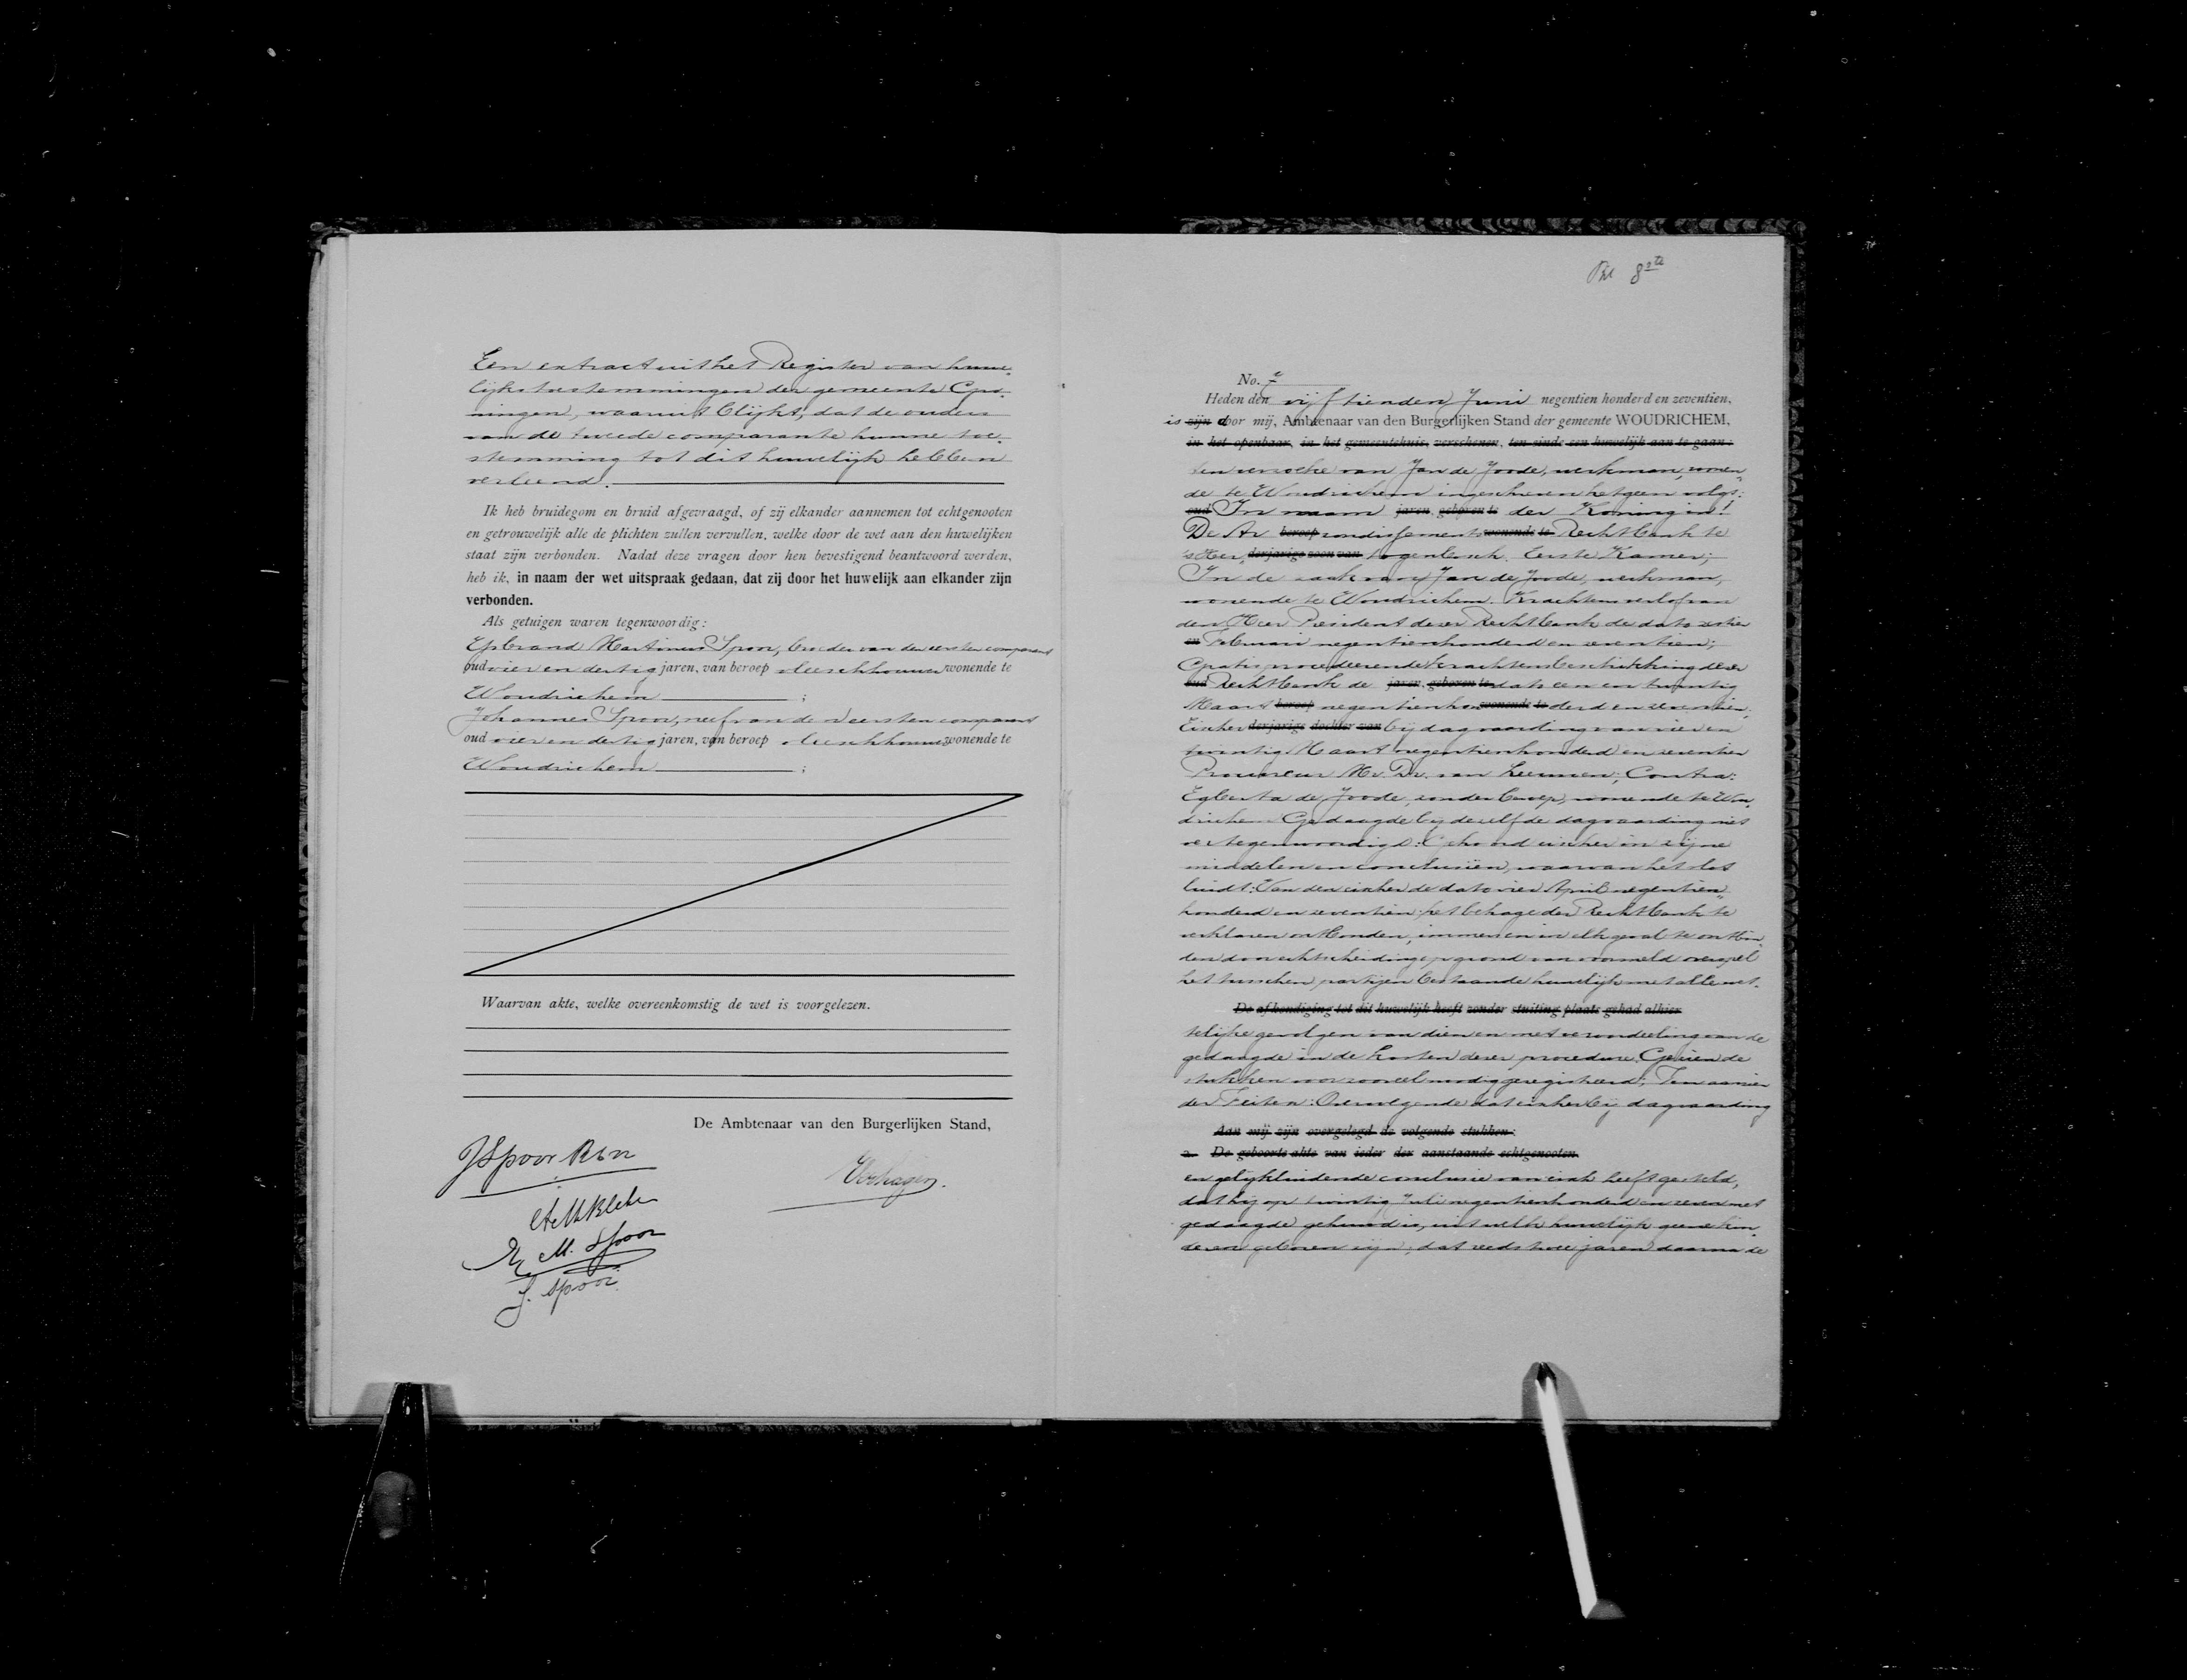 Een extract uit het Register van huwe-
lijkstoestemmingen der gemeente Gro-
ningen, waaruit blijkt, dat de ouders
van de tweede comparante hunne toe-
stemming tot dit huwelijk hebben
verleend.
Ik heb bruidegom en bruid afgevraagd, of zij elkander aannemen tot echtgenooten
en getrouwelijk alle de plichten zullen vervullen, welke door de wet aan den huwelijken
staat zijn verbonden. Nadat deze vragen door hen bevestigend beantwoord werden,
heb ik, in naam der wet uitspraak gedaan, dat zij door het huwelijk aan elkander zijn
verbonden.
Als getuigen waren tegenwoordig:
Ijsbrand Martinus Spoor, broeder van den eersten comparant
oud vier en dertig jaren, van beroep vleeschhouwer wonende te
Woudrichem ;
Johannes Spoor, neef van den eersten comparant
oud vier en dertig jaren, van beroep vleeschhouwer wonende te
Woudrichem ;
Waarvan akte, welke overeenkomstig de wet is voorgelezen.
De Ambtenaar van den Burgerlijken Stand,
JSpoor
Verhagen.
M. Spoor
J. Spoor
8ste
No. 7
Heden den vijftienden Juni negentien honderd en zeventien,
is zijn door mij, Ambtenaar van den Burgerlijken Stand der gemeente WOUDRICHEM,
in het openbaar, in het gemeentehuis, verschenen, ten einde een huwelijk aan te gaan:
ten verzoeke van Jan de Joode, werkman, wonen-
de te Woudrichem ingeschreven hetgeen volgt:
oud In naam jaren, geboren te der Koningin!
De Ar beroep rondissements wonende te Rechtbank te
's Her derjarige zoon van togenbosch. Eerste Kamer;
In de zaak van Jan de Joode, werkman,
wonende te Woudrichem. Krachtens verlof van
den Heer President dezer Rechtbank de dato zestien
en Februari negentienhonderd en zeventien;
Gratis procedeerende krachtens beschikking dezer
oud Rechtbank de jaren, geboren te dato een en twintig
Maart beroep negentienhon wonende te derd en zeventien;
Eischer derjarige dochter van bij dagvaarding van vier en
twintig Maart negentienhonderd en zeventien
Procureur Mr. Dr. van Leeuwen; Contra:
Egberta de Joode, zonder beroep, wonende te Wou-
drichem Gedaagde bij dezelfde dagvaarding niet
vertegenwoordigd: Gehoord eischer in zijne
middelen en conclusiën, waarvan het slot
luidt: Van den eischer de dato vier April negentien-
honderd en zeventien: het behage der Rechtbank te
verklaren ontbonden, immers en in elk geval te ontbin-
den door echtscheiding op grond van voormeld overspel
het tusschen partijen bestaande huwelijk met alle wet-
De afkondiging tot dit huwelijk heeft zonder stuiting plaats gehad alhier
telijke gevolgen van dien en met veroordeeling van de
gedaagde in de kosten dezer procedure. Gezien de
stukken voor zooveel noodig geregistreerd; Ten aanzien
der Feiten: Overwegende dat eischer bij dagvaarding
Aan mij zijn overgelegd de volgende stukken:
a. De geboorte-akte van ieder der aanstaande echtgenooten.
en gelijkluidende conclusie van eisch heeft gesteld,
dat hij op twintig Juli negentienhonderd en zeven met
gedaagde gehuwd is, uit welk huwelijk geene kin-
deren geboren zijn; dat reeds twee jaren daarna de